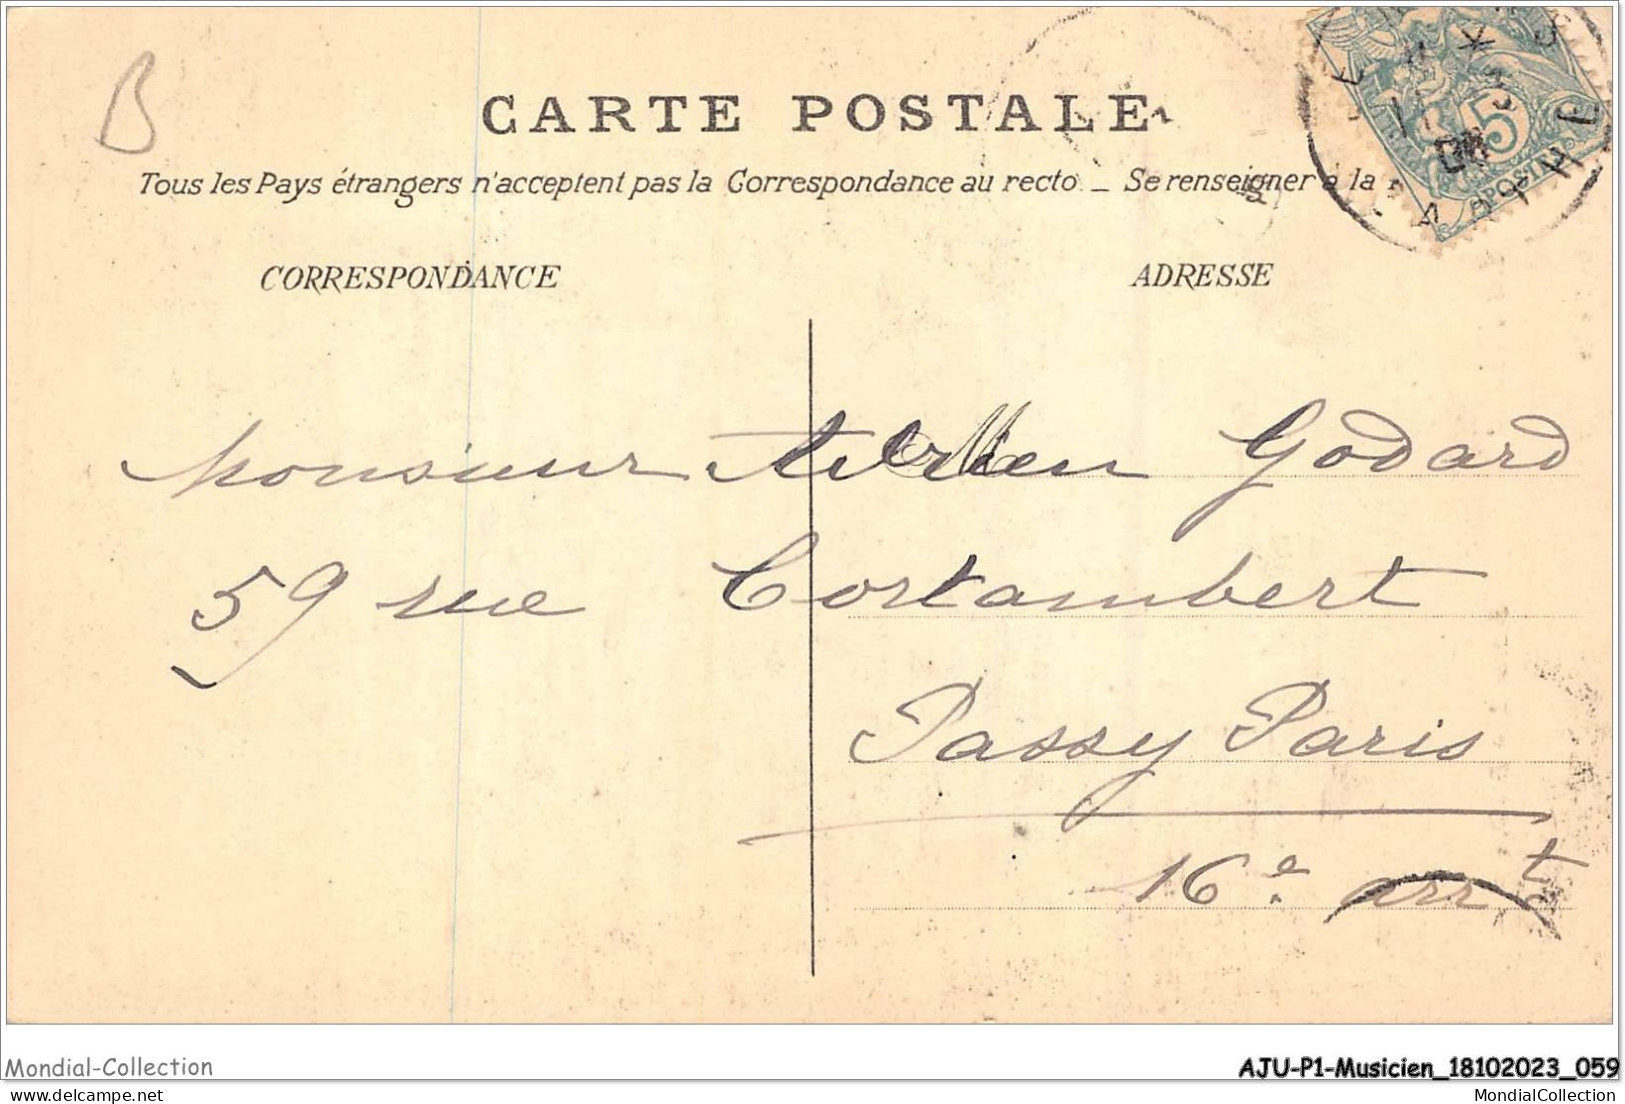 B
CARTE POSTALE
Tous les Pays étrangers n'acceptent pas la Correspondance au recto _ Se renseigner à la
5
POSTE
CORRESPONDANCE
ADRESSE
Monsieur Adrien Godard
59 rue Cortambert
Passy Paris
16e arrt
Mondial-Collection
AJU-P1-Musicien_18102023_059
delcampe.net
MondialCollection